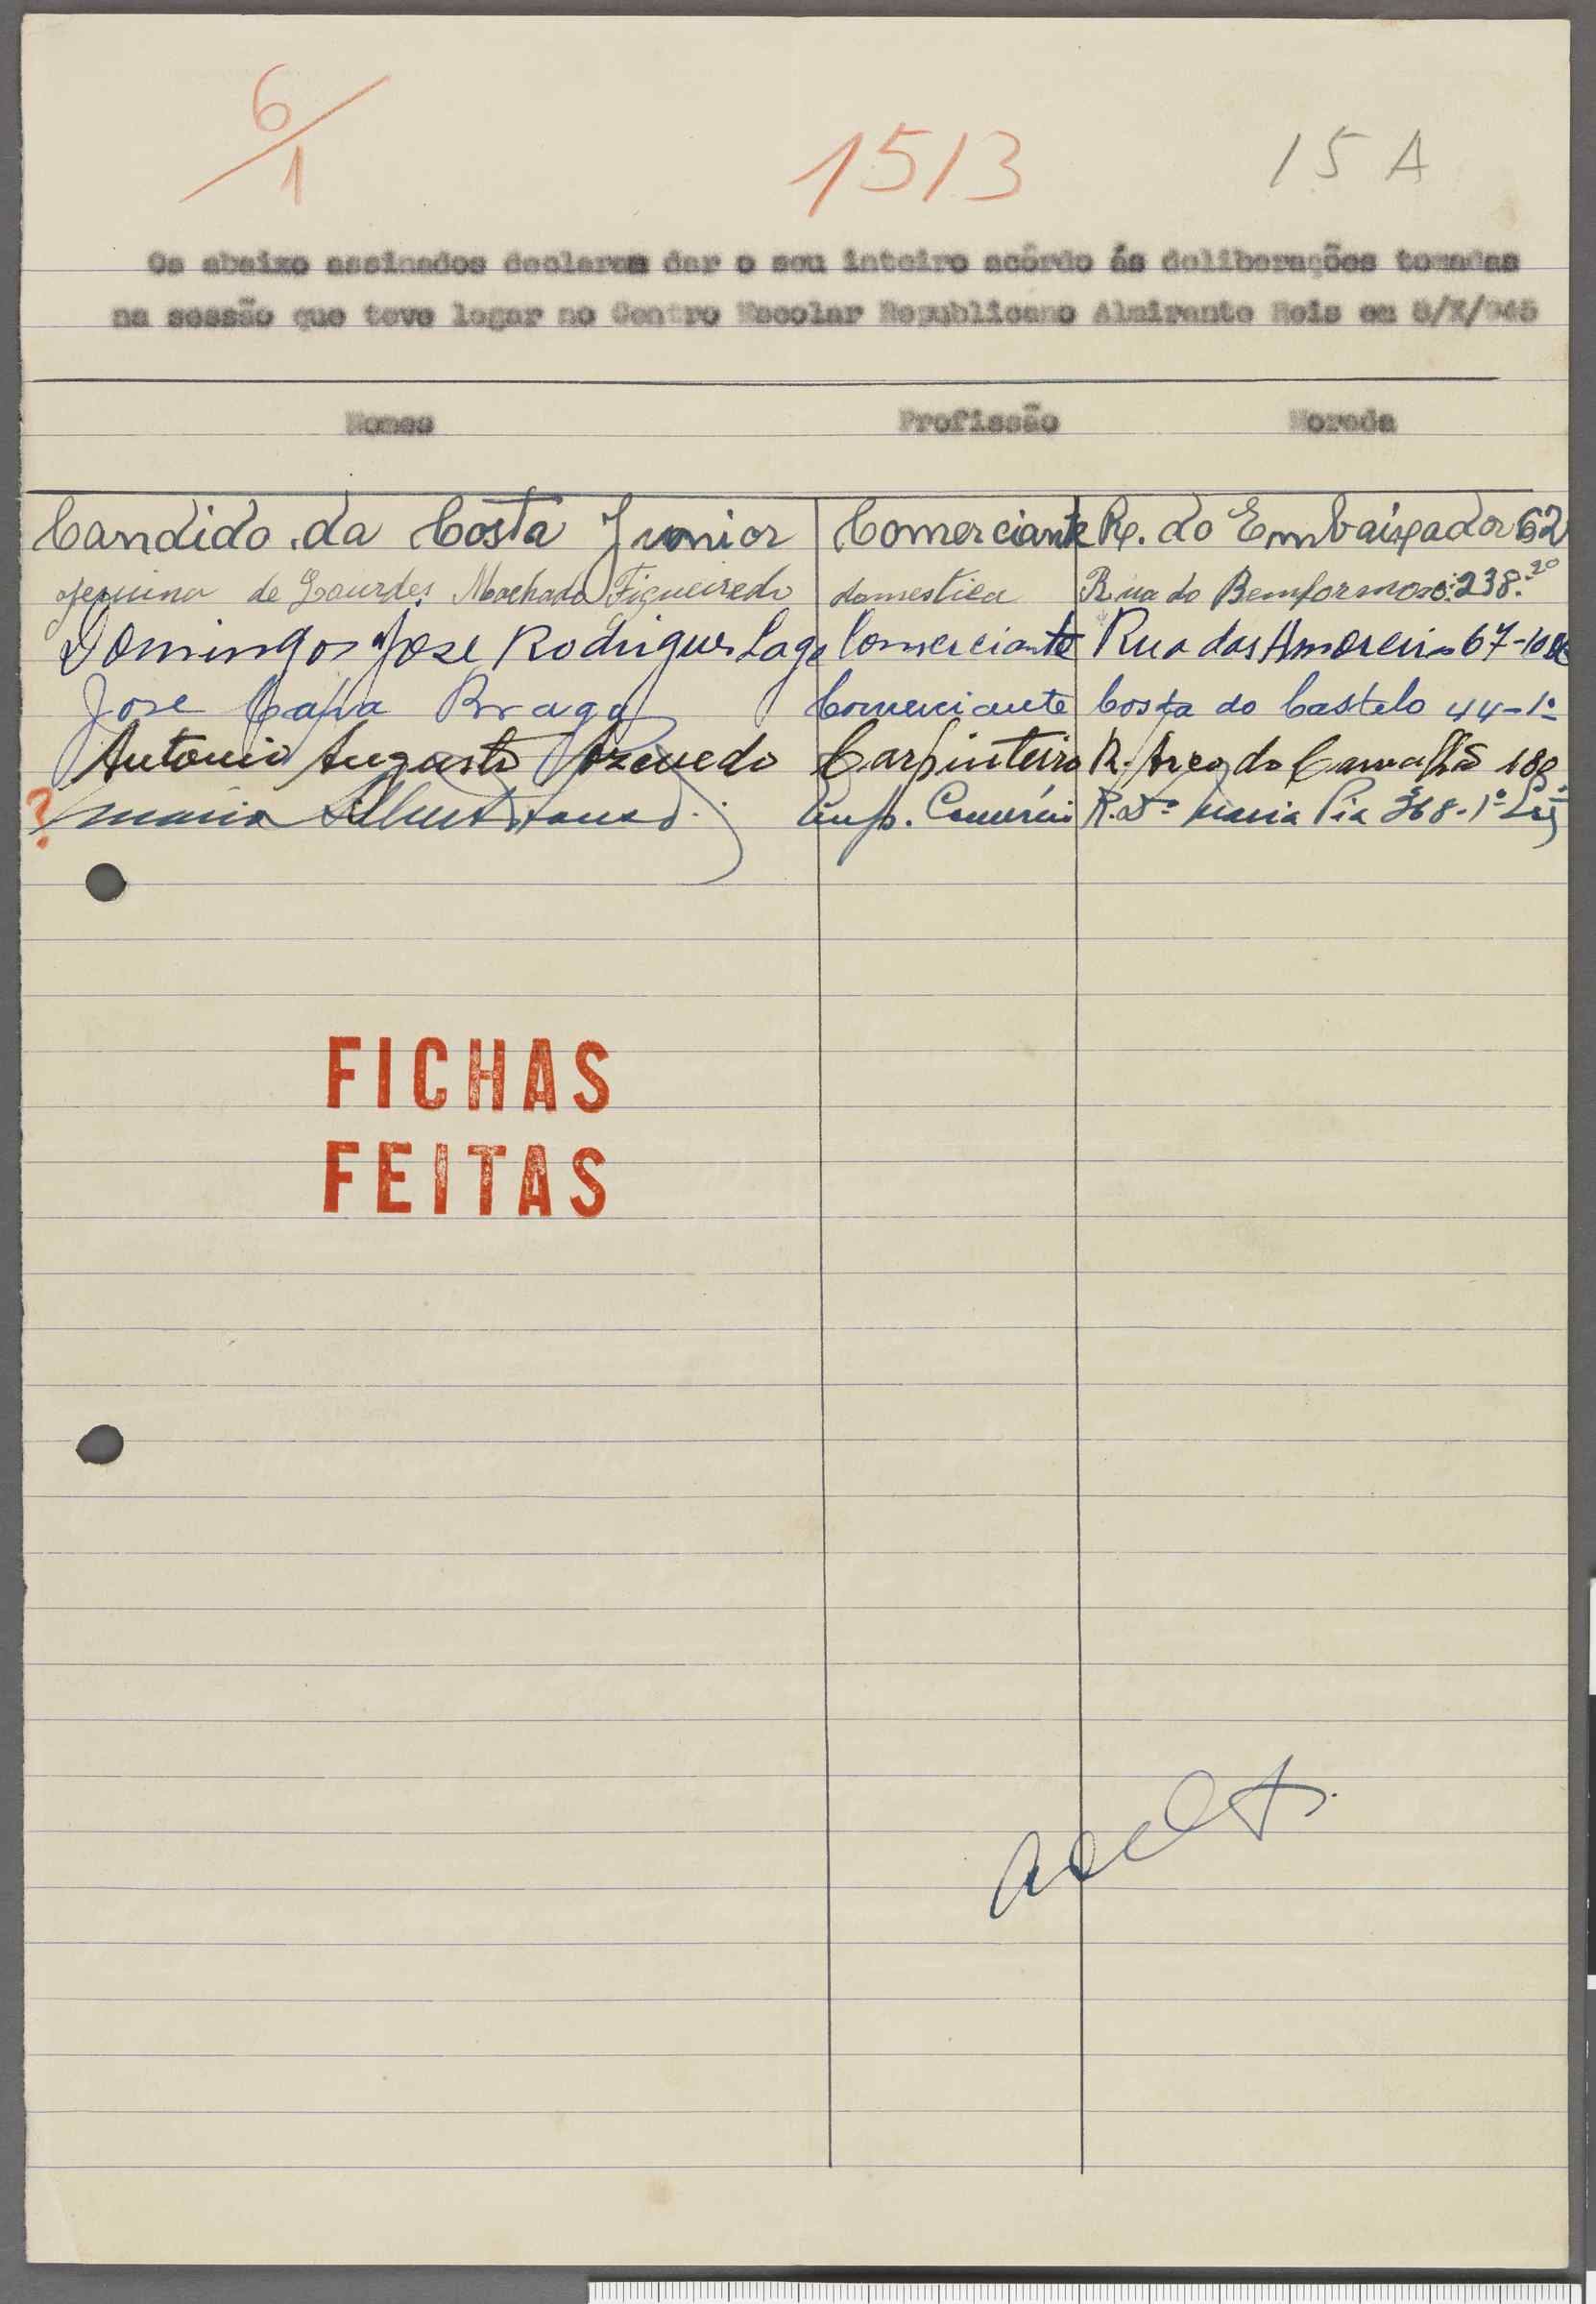 6/1 1513 15 A
Os abaixo assinados declaram dar o seu inteiro acôrdo ás deliberações tomadas
na sessão que teve logar no Centro Escolar Republicano Almirante Reis em 8/X/945
Nomes Profissão Morada
Candido da Costa Junior Comerciante R. do Embaixador 62
de Lourdes Machado Figueiredo domestica Rua do Bemformoso: 238. 2º
Domingos Jose Rodrigues Lago Comerciante Rua das Amoreiras 67-
Jose Capa Braga Comerciante Costa do Castelo 44-1º
Antonio Augusto Azevedo Carpinteiro R. Arco do Carvalhão 180
? Emp. Comércio R. Dª Maria Pia 368-1º
FICHAS
FEITAS